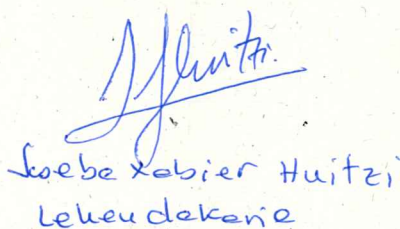 Huitzi.
Joseba Xabier Huitzi
Lehendakaria